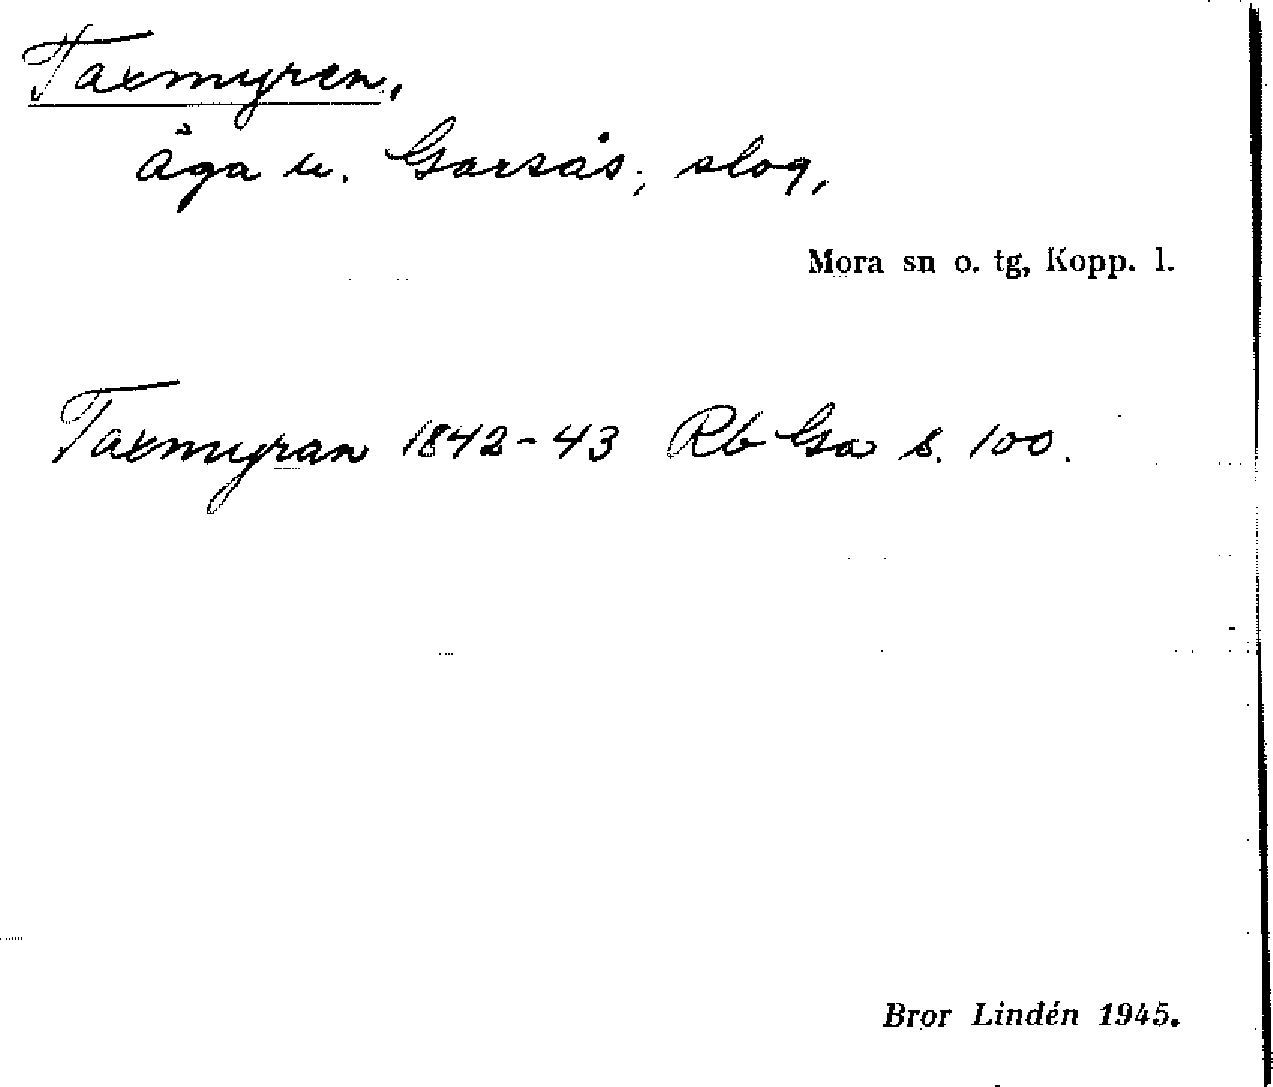 Taxmyren,
äga u. Garsås; slog,
Mora sn o. tg, Kopp. l.
Taxmyran 1842-43 Rb Ga s. 100.
Bror Lindén 1945.